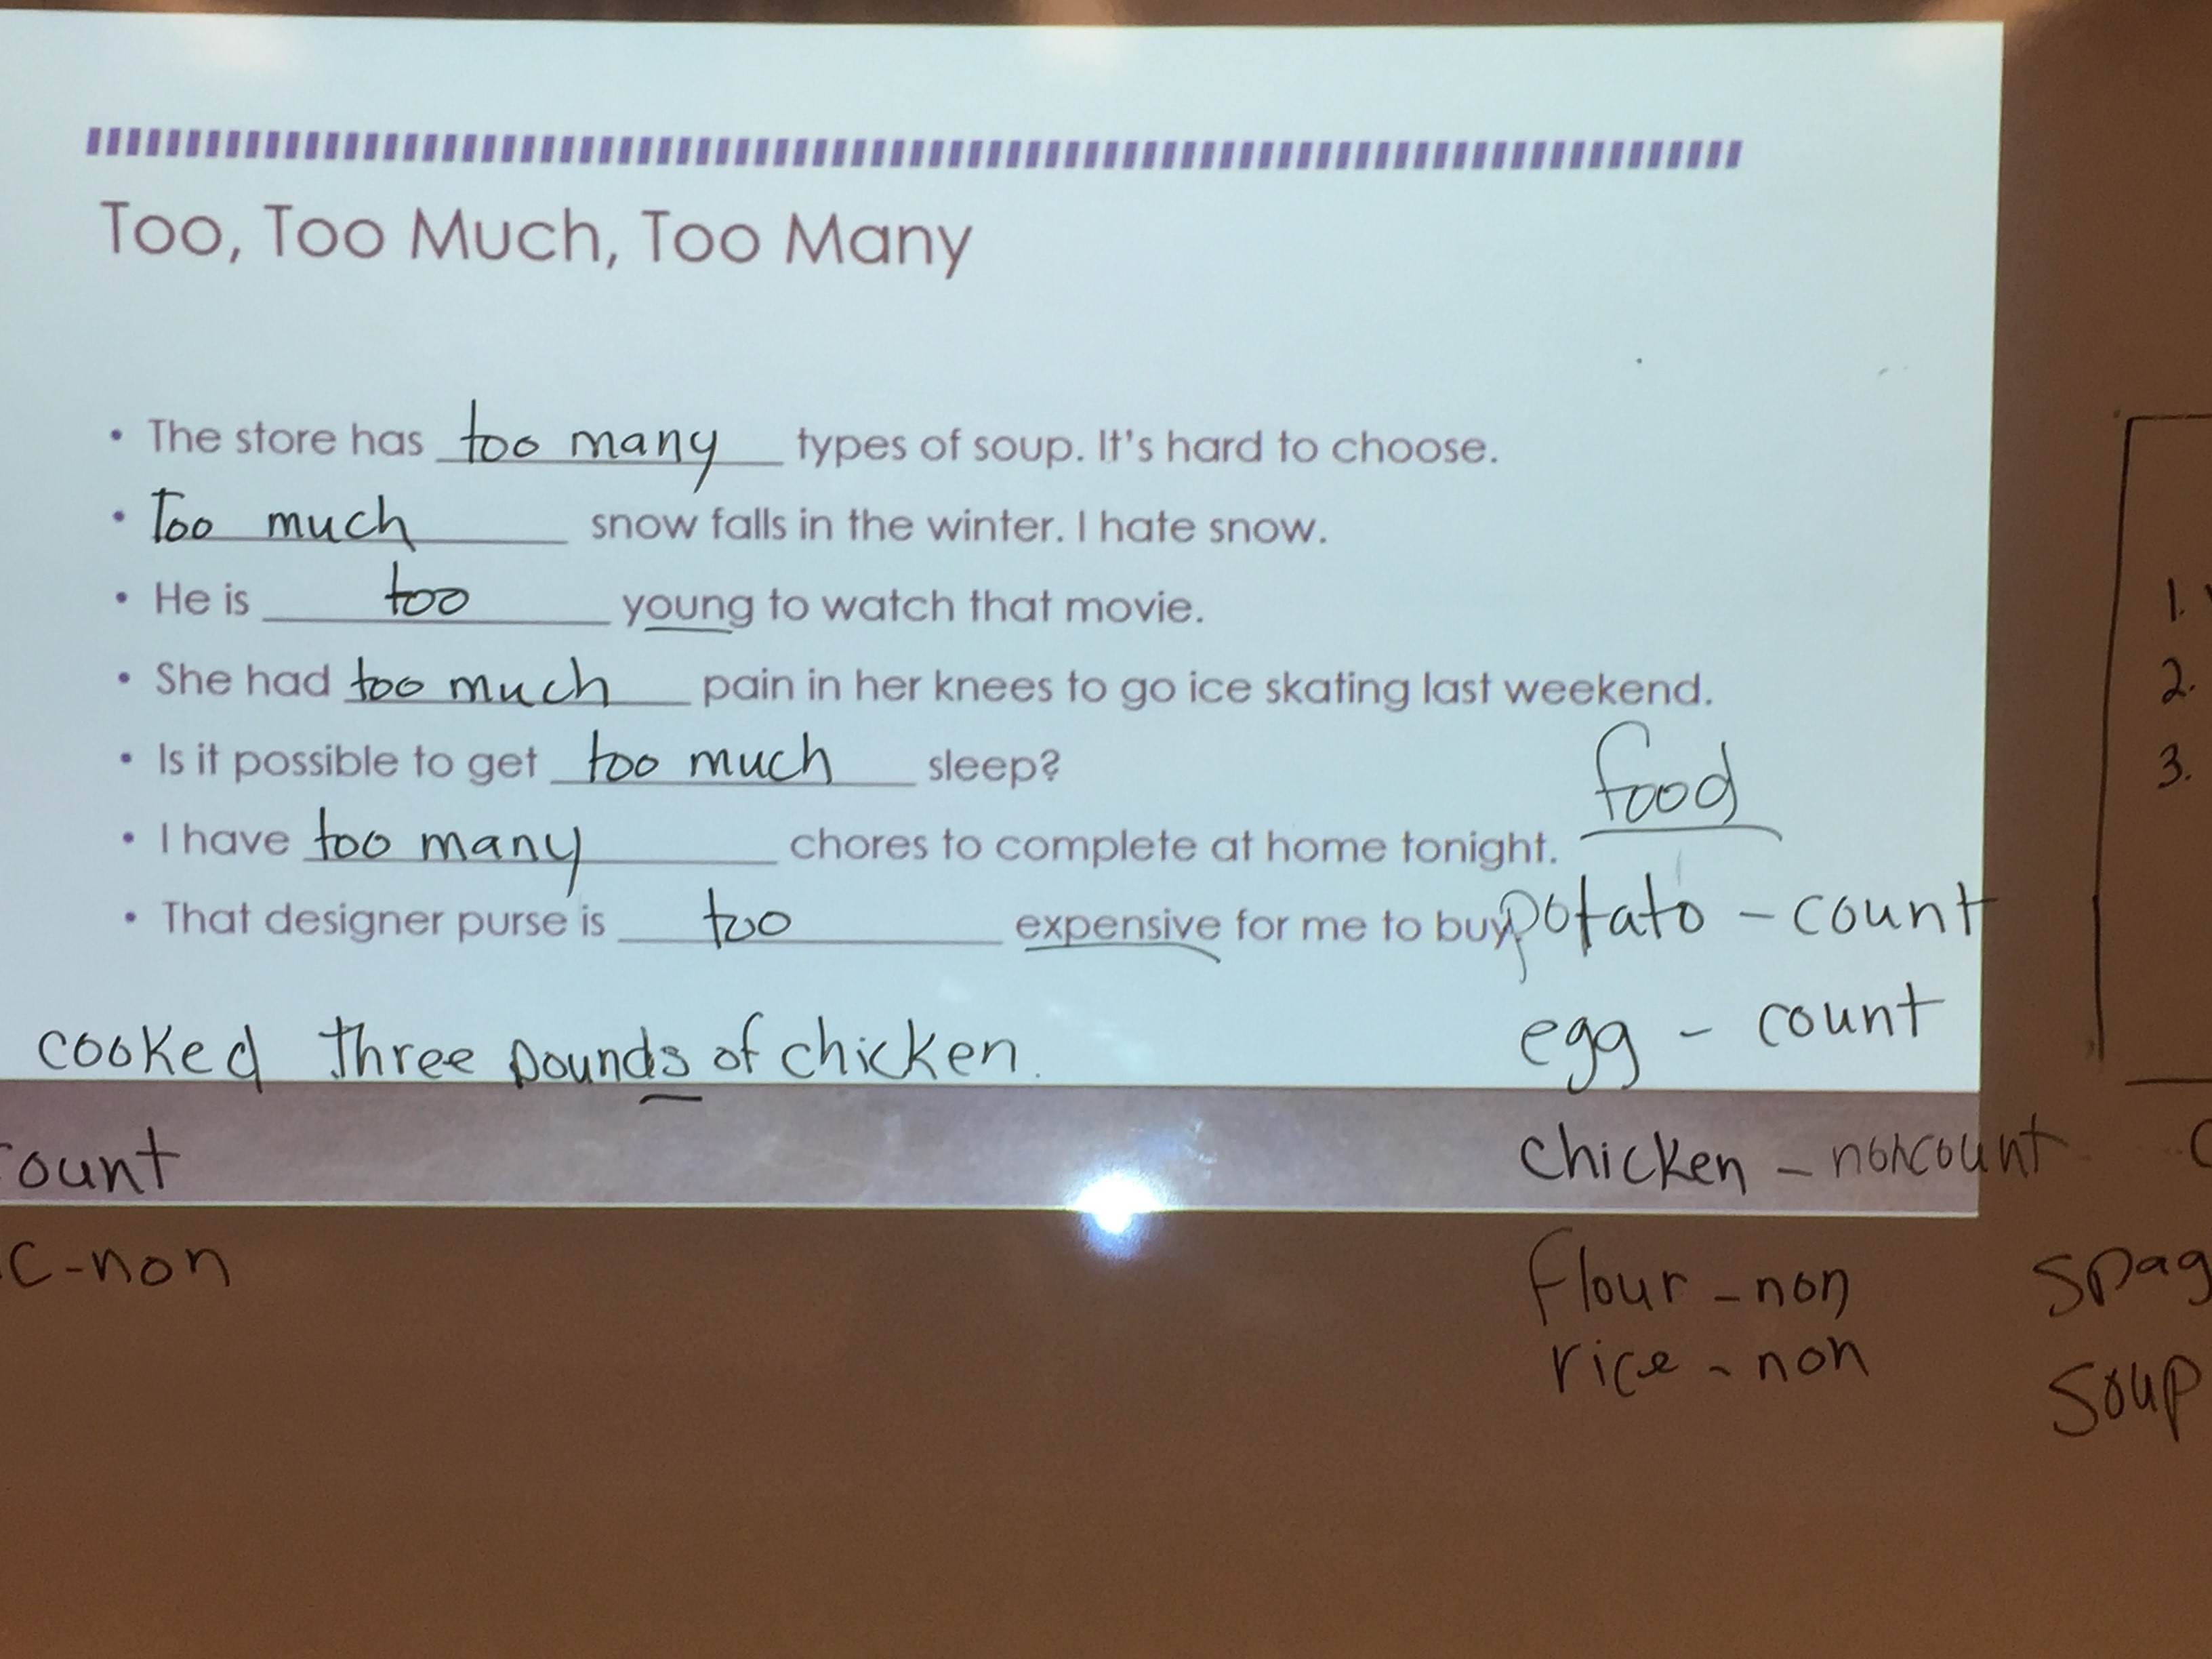 Too, Too Much, Too Many
• The store has too many types of soup. It's hard to choose.
• Too much snow falls in the winter. I hate snow.
• He is too young to watch that movie.
• She had too much pain in her knees to go ice skating last weekend.
• Is it possible to get too much sleep?
• I have too many chores to complete at home tonight.
• That designer purse is too expensive for me to buy.
cooked three pounds of chicken.
ount
c-non
food
potato - count
egg - count
chicken - noncount
flour - non
rice - non
1.
2.
3.
spag
soup